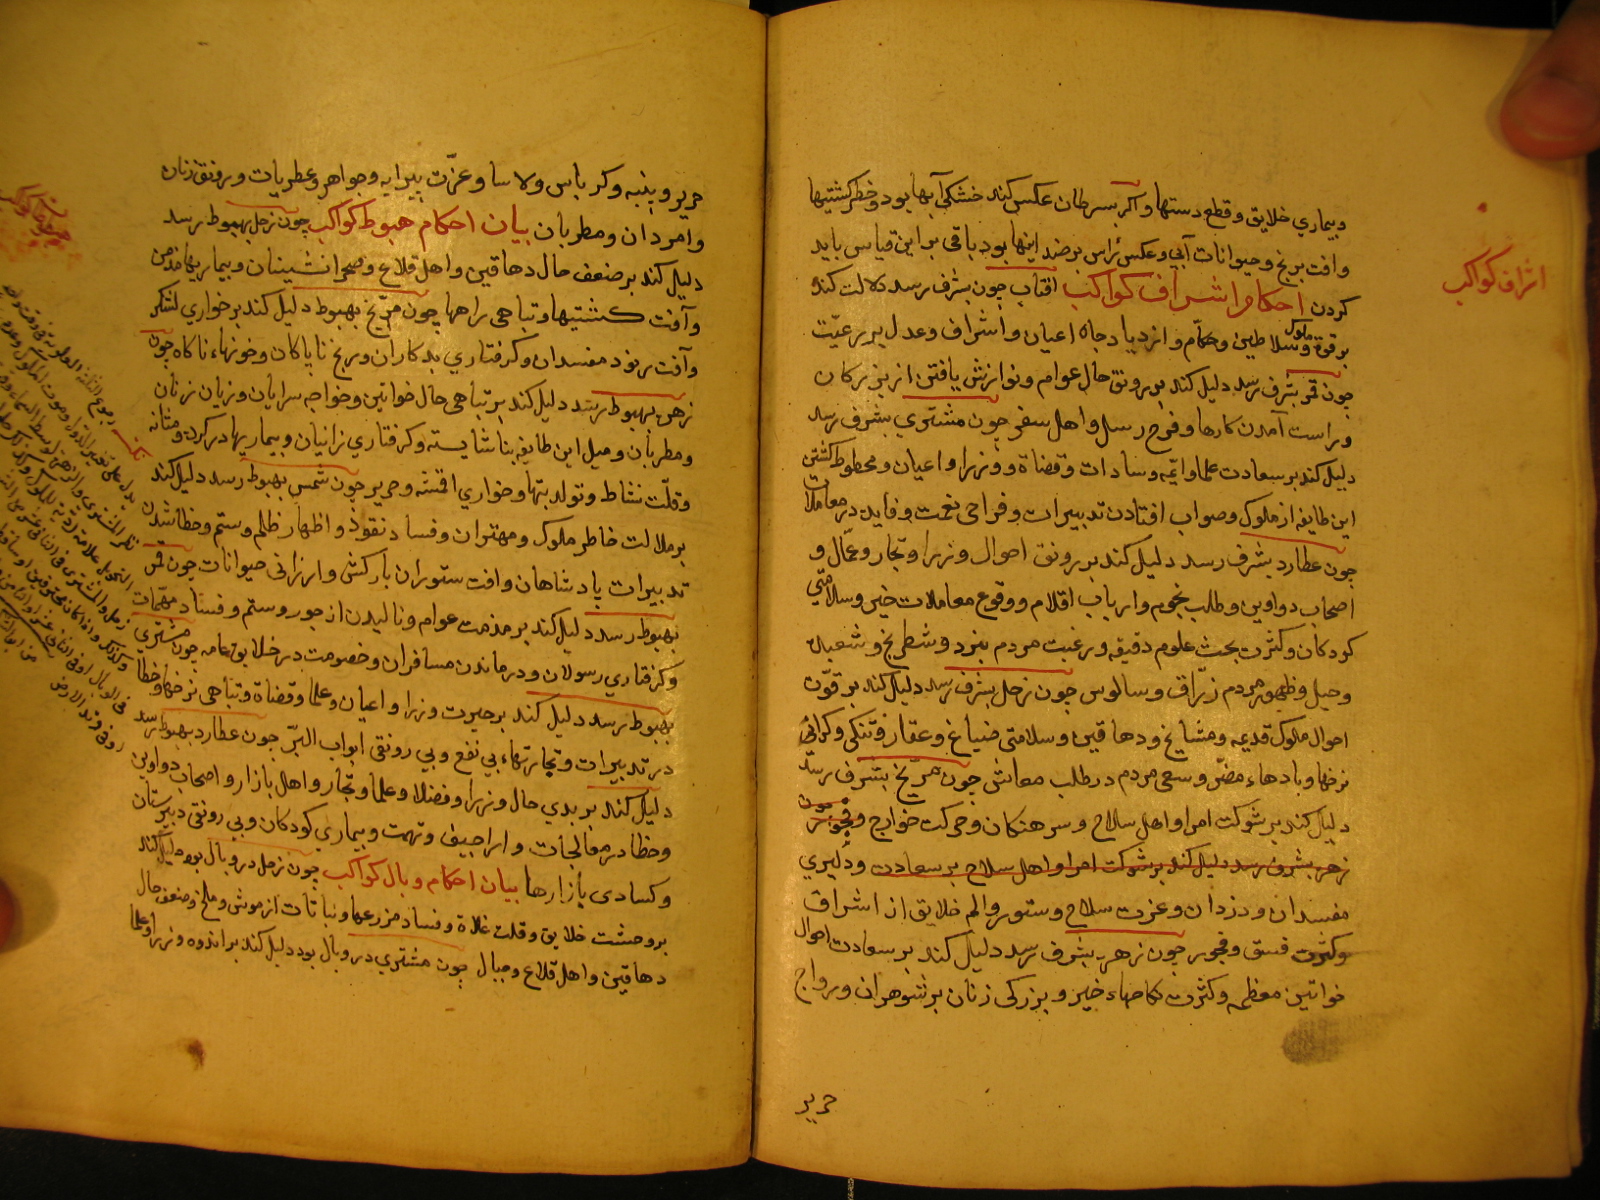 وبيماري خلايق وقطع دستها واكر بسرطان عكس كند خشكي آبها بود وخطر كشتيها
وافت برنج وحيوانات آبي وعكس رأس بر ضد اينها بود باقي براين قياس بايد
كردن احكام اشراف كواكب افتاب چون بشرف رسد دلالت كند
اشراف كواكب
بر قوة ملوك وسلاطين وحكام وازدياد جاه اعيان واشراف وعدل بر رعيّت
چون قمر بشرف رسد دليل كند بر رونق حال عوام ونوازش يافتن از بزركان
وراست آمدن كارها وفرح رسل واهل سفر چون مشتري بشرف رسد
دليل كند بر سعادت علما وايمه وسادات وقضاة ووزرا واعيان ومحظوظ كشتن
اين طايفه از ملوك وصواب افتادن تدبيرات وفراخي نعمت وفايده در معاملات
چون عطارد بشرف رسد دليل كند بر رونق احوال وزرا وتجار وعمّال و
اصحاب دواوين وطلب نجوم وارباب اقلام ووقوع معاملات خير وسلامتي
كودكان وكثرت بحث علوم دقيقه ورغبت مردم بنرد وشطرنج وشعبده
وحيل وظهور مردم زرّاق وسالوس چون زحل بشرف رسد دليل كند بر قوّت
احوال ملوك قديمه ومشايخ ودهاقين وسلامتي ضياع وعقار وتنكي وكراني
نرخها وبادهاء مضرّ وسعي مردم در طلب معاش چون مرّيخ بشرف رسد
دليل كند بر شوكت امرا واهل سلاح وسرهنكان وحركت خوارج وفجور چون
زهره بشرف رسد دليل كند بر شوكت امرا واهل سلاح بر سعادت ودليري
مفسدان ودزدان وعزت سلاح وستور والم خلايق از اشراف
وكثرت فسق وفجور چون زهره بشرف رسد دليل كند بر سعادت احوال
خواتين معظمه وكثرت نكاحهاء خير وبزركي زنان بر شوهران ورواج
حرير
حرير وپنبه وكرباس ولاسا وعزّت پيرايه وجواهر وعطريات ورونق زنان
وامردان ومطربان بيان احكام هبوط كواكب چون زحل بهبوط رسد
دليل كند بر ضعف حال دهاقين واهل قلاع وصحرانشينان وبيماريها مزمن
وآفت كشتيها وتباهي راهها چون مرّيخ بهبوط رسد دليل كند بر خواري لشكر
وآفت مفسدان وكرفتاري بدكاران ورنج ناپاكان وخونهاء ناكاه چون
زهره بهبوط رسد دليل كند بر تباهي حال خواتين وخواجه سرايان وزيان زنان
ومطربان وميل اين طايفه بناشايسته وكرفتاري زانيان وبيماريها در كرده ومثانه
وقلّت نشاط وتولد تبها وخواري اقمشه وحرير چون شمس بهبوط رسد دليل كند
بر ملالت خاطر ملوك ومهتران وفساد نقود واظهار ظلم وستم وخطا شدن
تدبيرات پادشاهان وافت ستوران باركش وارزاني حيوانات چون قمر
بهبوط رسد دليل كند بر مذمت عوام وناليدن از جور وستم وفساد مهمّات
وكرفتاري رسولان ودرماندن مسافران وخصومت در خلايق عامه چون مشتري
بهبوط رسد دليل كند بر حيرت وزرا واعيان وعلما وقضاة وتباهي نرخها وخطا
در تدبيرات وتجارتهاء بي نفع وبي رونقي ابواب البرّ چون عطارد بهبوط رسد
دليل كند بر بدي حال وزرا وفضلا وعلما وتجّار واهل بازار واصحاب دواوين
وخطا در معالجات واراجيف وتهمت وبيماري كودكان وبي رونقي دبيرستان
وكسادي بازارها بيان احكام وبال كواكب چون زحل در وبال بود دليل كند
بر وحشت خلايق وقلت غلاة وفساد مزرعها ونباتات از موش وملخ وضعف حال
دهاقين واهل قلاع وجبال چون مشتري در وبال بود دليل كند بر اندوه وزرا وعلما